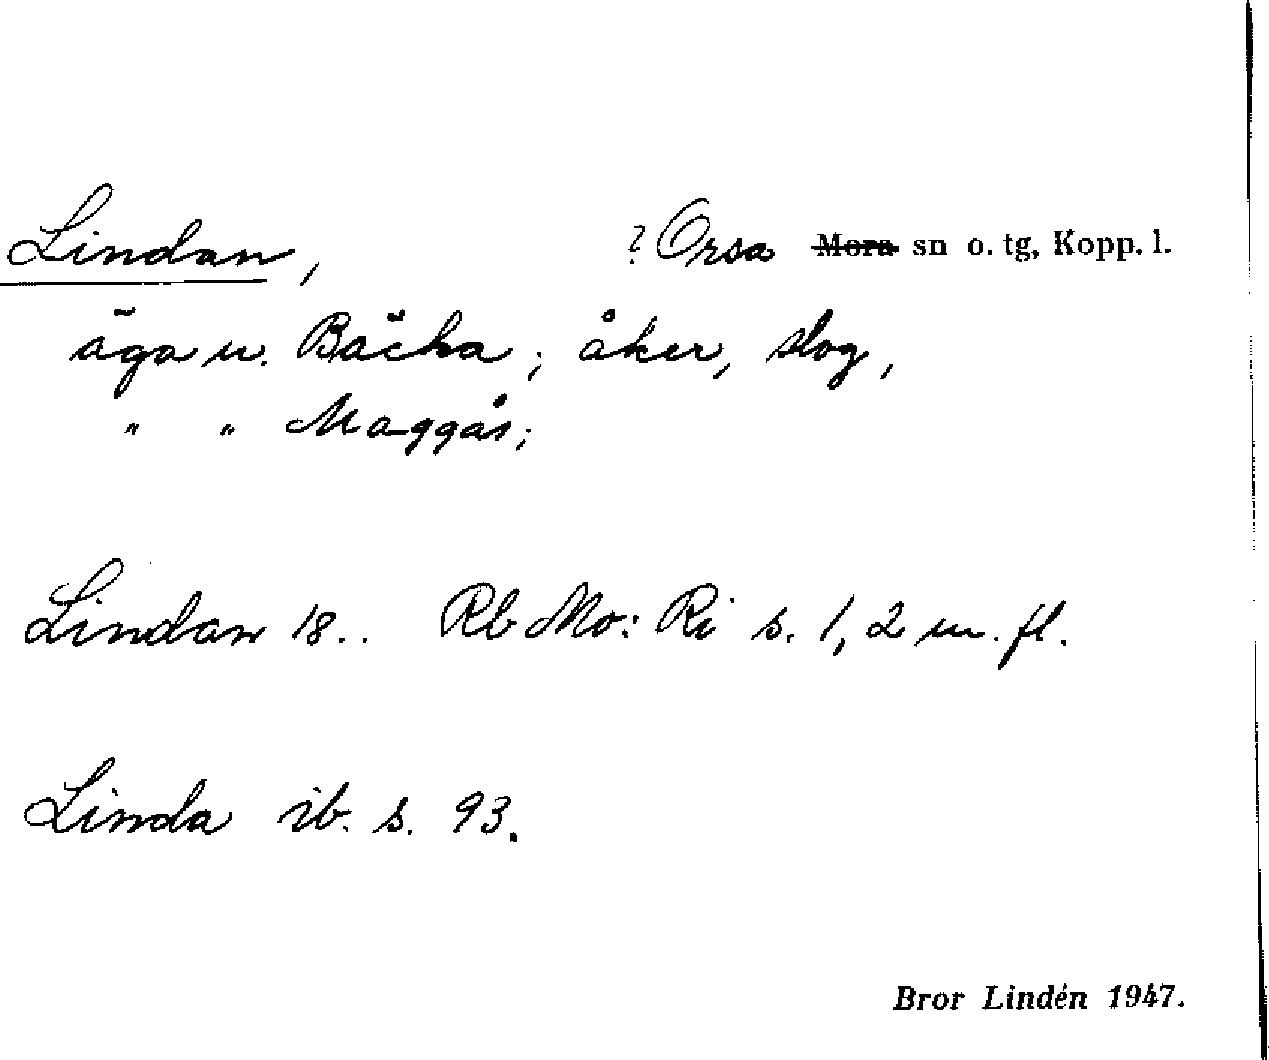 Lindan, ? Orsa Mora sn o. tg, Kopp. l.
äga u. Bäcka; åker, slog,
" " Maggås;
Lindan 18.. Rb Mo: Ri s. 1, 2 m. fl.
Linda ib. s. 93.
Bror Lindén 1947.